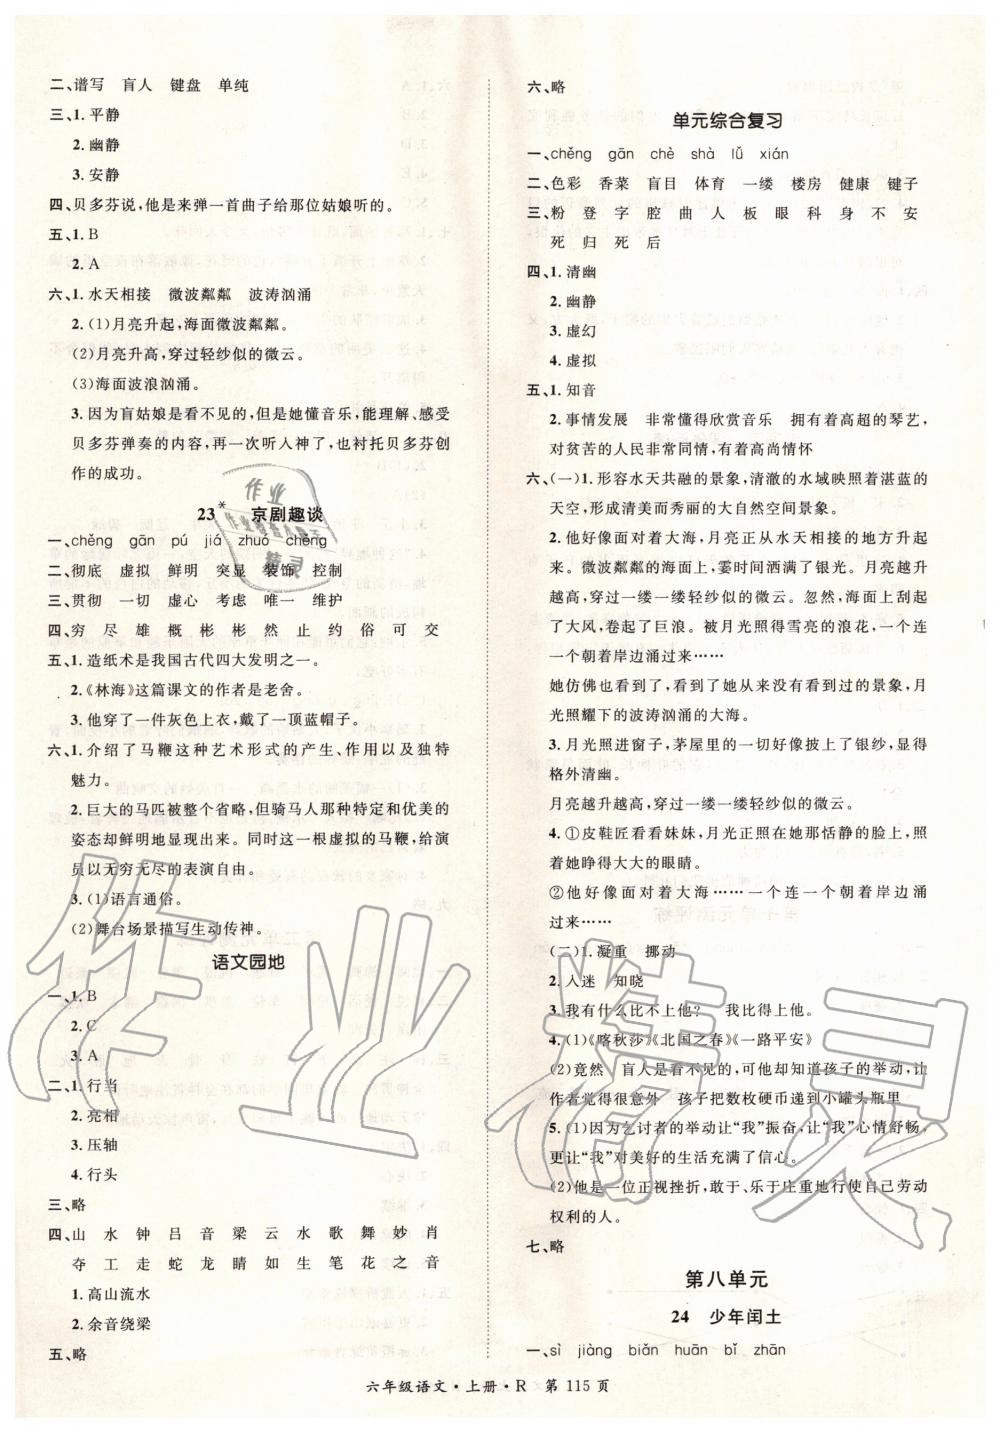 二、谱写 盲人 键盘 单纯
三、1.平静
2.幽静
3.安静
四、贝多芬说,他是来弹一首曲子给那位姑娘听的。
五、1.B
2.A
六、1.水天相接 微波粼粼 波涛汹涌
2.(1)月亮升起,海面微波粼粼。
(2)月亮升高,穿过轻纱似的微云。
(3)海面波浪汹涌。
3.因为盲姑娘是看不见的,但是她懂音乐,能理解、感受
贝多芬弹奏的内容,再一次听人神了,也衬托贝多芬创
作的成功。
23* 京剧趣谈
一、chěng gān pú jiá zhuó chěng
二、彻底 虚拟 鲜明 突显 装饰 控制
三、贯彻 一切 虚心 考虑 唯一 维护
四、穷 尽 雄 概 彬 彬 然 止 约 俗 可 交
五、1.造纸术是我国古代四大发明之一。
2.《林海》这篇课文的作者是老舍。
3.他穿了一件灰色上衣,戴了一顶蓝帽子。
六、1.介绍了马鞭这种艺术形式的产生、作用以及独特
魅力。
2.巨大的马匹被整个省略,但骑马人那种特定和优美的
姿态却鲜明地显现出来。同时这一根虚拟的马鞭,给演
员以无穷无尽的表演自由。
3.(1)语言通俗。
(2)舞台场景描写生动传神。
语文园地
一、1.B
2.C
3.A
二、1.行当
2.亮相
3.压轴
4.行头
三、略
四、山 水 钟 吕 音 梁 云 水 歌 舞 妙 肖
夺 工 走 蛇 龙 睛 如 生 笔 花 之 音
1.高山流水
2.余音绕梁
五、略
六、略
单元综合复习
一、chěng gān chè shà lǚ xián
二、色彩 香菜 盲目 体育 一缕 楼房 健康 键子
三、粉 登 字 腔 曲 人 板 眼 科 身 不 安
死 归 死 后
四、1.清幽
2.幽静
3.虚幻
4.虚拟
五、1.知音
2.事情发展 非常懂得欣赏音乐 拥有着高超的琴艺,
对贫苦的人民非常同情,有着高尚情怀
六、(一)1.形容水天共融的景象,清澈的水域映照着湛蓝的
天空,形成清美而秀丽的大自然空间景象。
2.他好像面对着大海,月亮正从水天相接的地方升起
来。微波粼粼的海面上,霎时间洒满了银光。月亮越升
越高,穿过一缕一缕轻纱似的微云。忽然,海面上刮起
了大风,卷起了巨浪。被月光照得雪亮的浪花,一个连
一个朝着岸边涌过来……
她仿佛也看到了,看到了她从来没有看到过的景象,月
光照耀下的波涛汹涌的大海。
3.月光照进窗子,茅屋里的一切好像披上了银纱,显得
格外清幽。
月亮越升越高,穿过一缕一缕轻纱似的微云。
4.①皮鞋匠看看妹妹,月光正照在她那恬静的脸上,照
着她睁得大大的眼睛。
②他好像面对着大海……一个连一个朝着岸边涌
过来……
(二)1.凝重 挪动
2.人迷 知晓
3.我有什么比不上他? 我比得上他。
4.(1)《喀秋莎》《北国之春》《一路平安》
(2)竟然 盲人万万没想到,可他却知道孩子的举动,让
作者感觉得很意外 孩子把数枚硬币递到小罐头瓶里
5.(1)因为乞讨者的举动让“我”振奋,让“我”心情舒畅,
更让“我”对美好的生活充满了信心。
(2)他是一位正视挫折,敢于、乐于庄重地行使自己劳动
权利的人。
七、略
第八单元
24 少年闰土
一、sì jiàng biǎn huān bǐ zhān
六年级语文·上册·R 第 115 页
作业
精灵
作业精灵